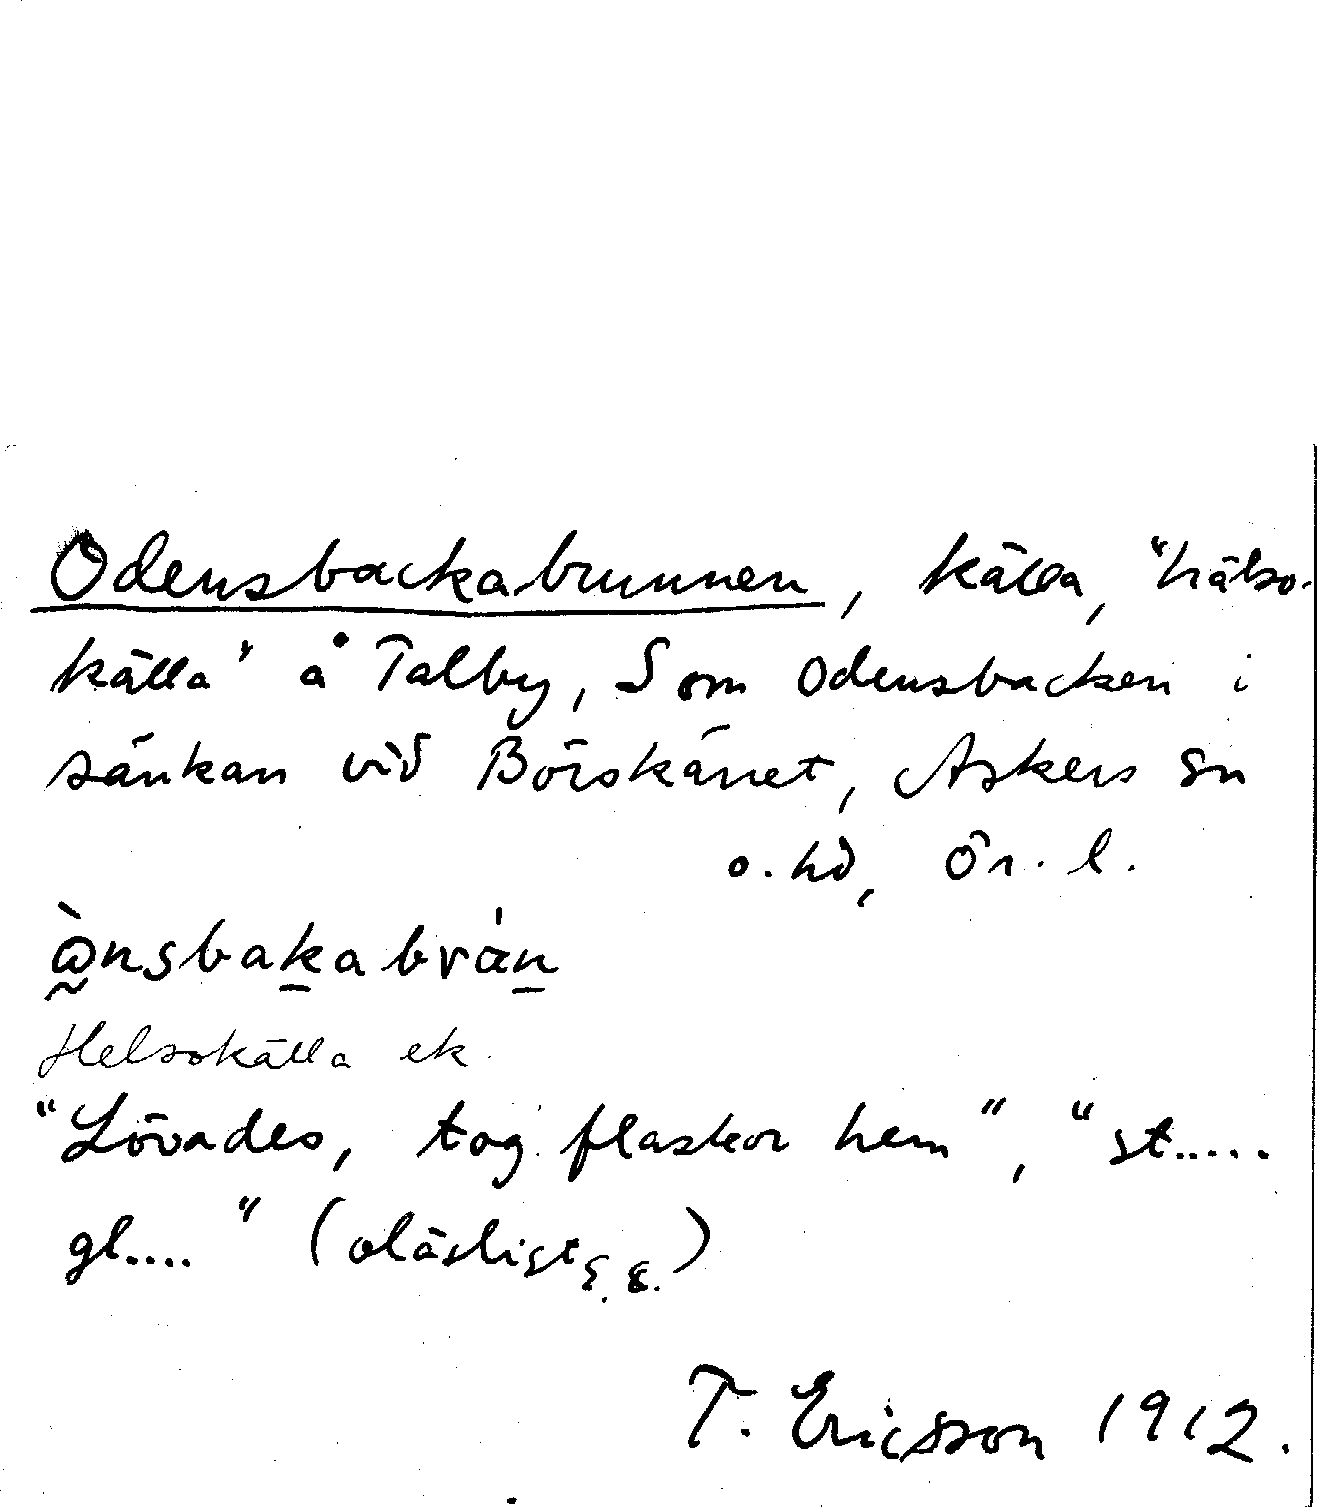 Odensbackabrunnen, källa, "hälso-
källa" å Talby, S om Odensbacken i
sänkan vid Börskärret, Askers sn
o. hd, Ör. l.
ὼnsbakabrán
Helsokälla ek.
"Lövades, tog flaskor hem", "st.....
gl...." (oläsligt
T. Ericsson 1912.